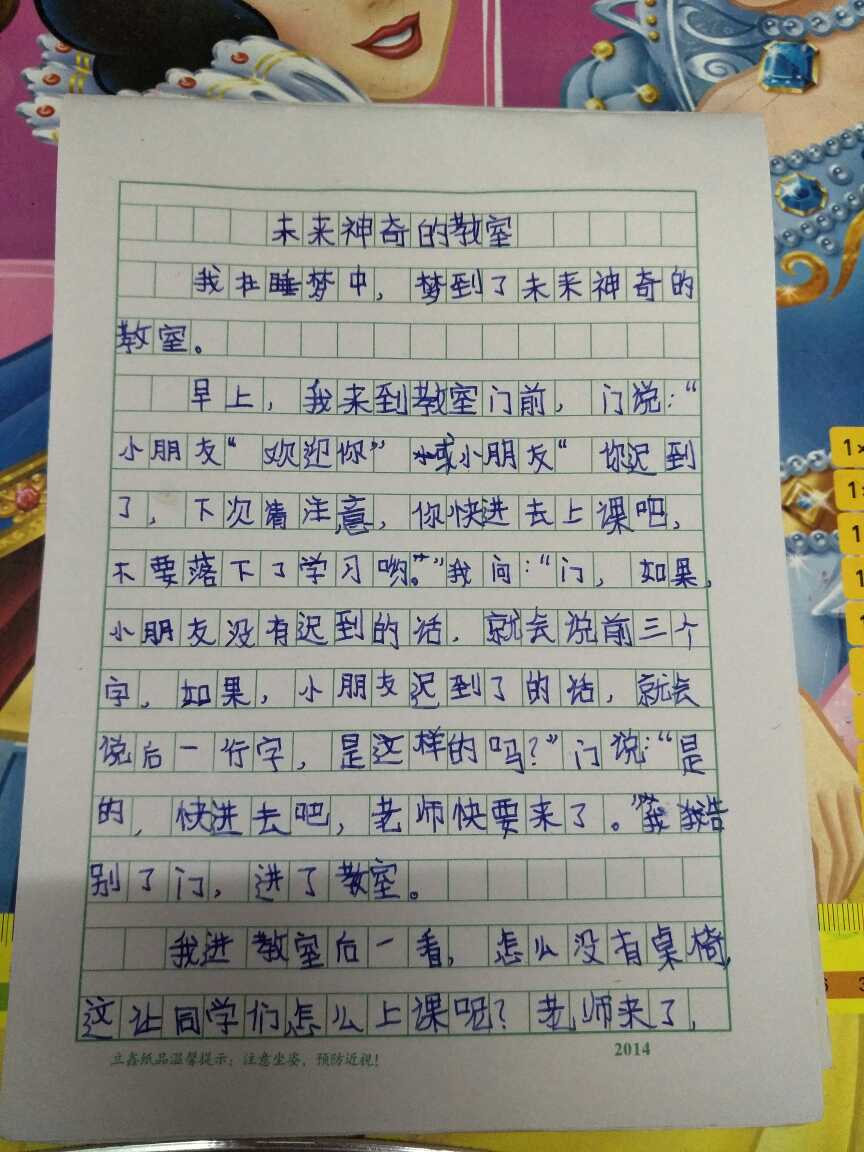 未来神奇的教室
我在睡梦中，梦到了未来神奇的
教室。
早上，我来到教室门前，门说：“
小朋友“欢迎你”或小朋友“你迟到
了，下次请注意，你快进去上课吧，
不要落下了学习哟。”我问：“门，如果，
小朋友没有迟到的话，就会说前三个
字，如果，小朋友迟到了的话，就会
说后一行字，是这样的吗？”门说：“是
的，快进去吧，老师快要来了。”我告
别了门，进了教室。
我进教室后一看，怎么没有桌椅，
这让同学们怎么上课呢？老师来了，
立鑫纸品温馨提示：注意坐姿，预防近视！
2014
1
1
1
1